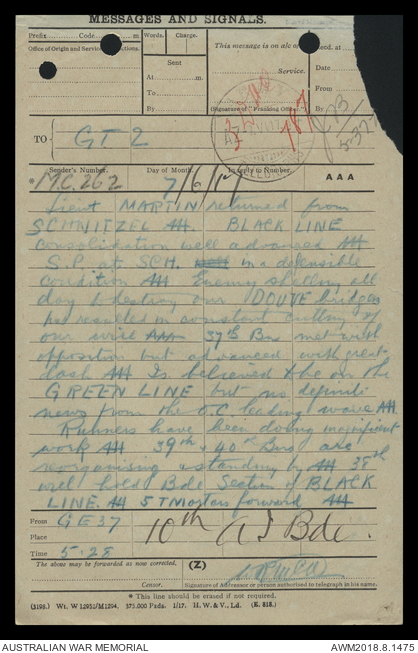 MESSAGES AND SIGNALS.
Prefix Code m. Words. Charge. This message is on a/c of end. at
Office of Origin and Service Instructions.
Sent
At m. Service. Date
To From
By (Signature of "Franking Officer") By
787
TO G T 2
Sender's Number. Day of Month. In reply to Number.
* M.C. 262 7/6/17 A A A
Lieut MARTIN returned from
SCHNITZEL AAA BLACK LINE
consolidation well advanced AAA
S.P. at SCH. in a defensible
condition AAA Enemy shelling all
day to destroy our DOUVE bridges
has resulted in constant cutting of
our wire AAA 37th Bn met with
opposition but advanced with great
dash AAA Is believed to be on the
GREEN LINE but no definite
news from the O.C. leading wave AAA
Runners have been doing magnificent
work AAA 39th & 40th Bns are
reorganising & standing by AAA 38th
will hold Bde Section of BLACK
LINE. AAA 5 T Mortars forward AAA
From GE 37
Place 10th A I Bde.
Time 5.28
The above may be forwarded as now corrected. (Z)
Censor. Signature of Addressor or person authorised to telegraph in his name.
* This line should be erased if not required.
(3198.) Wt. W 12952/M1294. 375,000 Pads. 1/17. H. W. & V., Ld. (E. 818.)
AUSTRALIAN WAR MEMORIAL AWM2018.8.1475